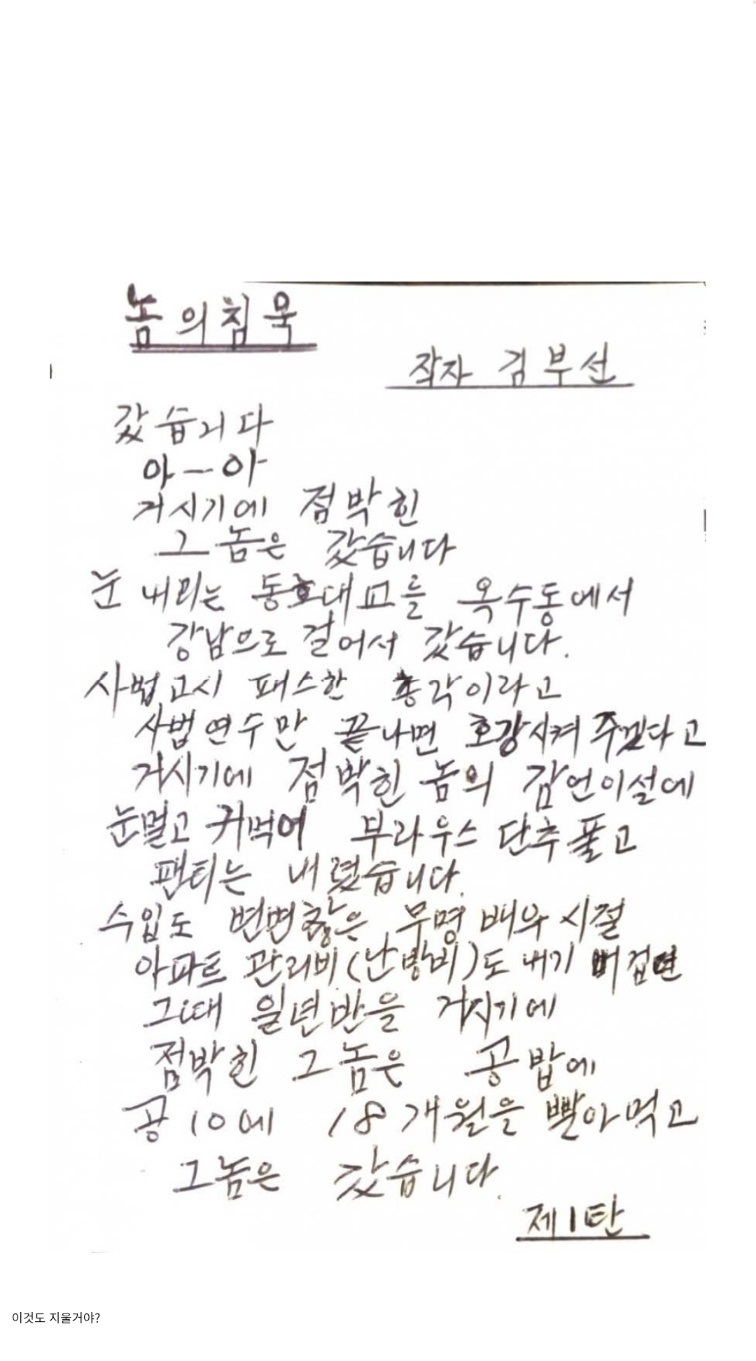 놈의침묵
작자 김부선
갔습니다
아-아
거시기에 점박힌
그놈은 갔습니다
눈 내리는 동호대교를 옥수동에서
강남으로 걸어서 갔습니다.
사법고시 패스한 총각이라고
사법연수만 끝나면 호강시켜 주겠다고
거시기에 점박힌 놈의 감언이설에
눈멀고 귀먹어 부라우스 단추풀고
팬티는 내렸습니다.
수입도 변변찮은 무명 배우 시절
아파트 관리비(난방비)도 내기 버겁던
그때 일년반을 거시기에
점박힌 그놈은 공밥에
공10에 18개월을 빨아먹고
그놈은 갔습니다.
제1탄
이것도 지울거야?